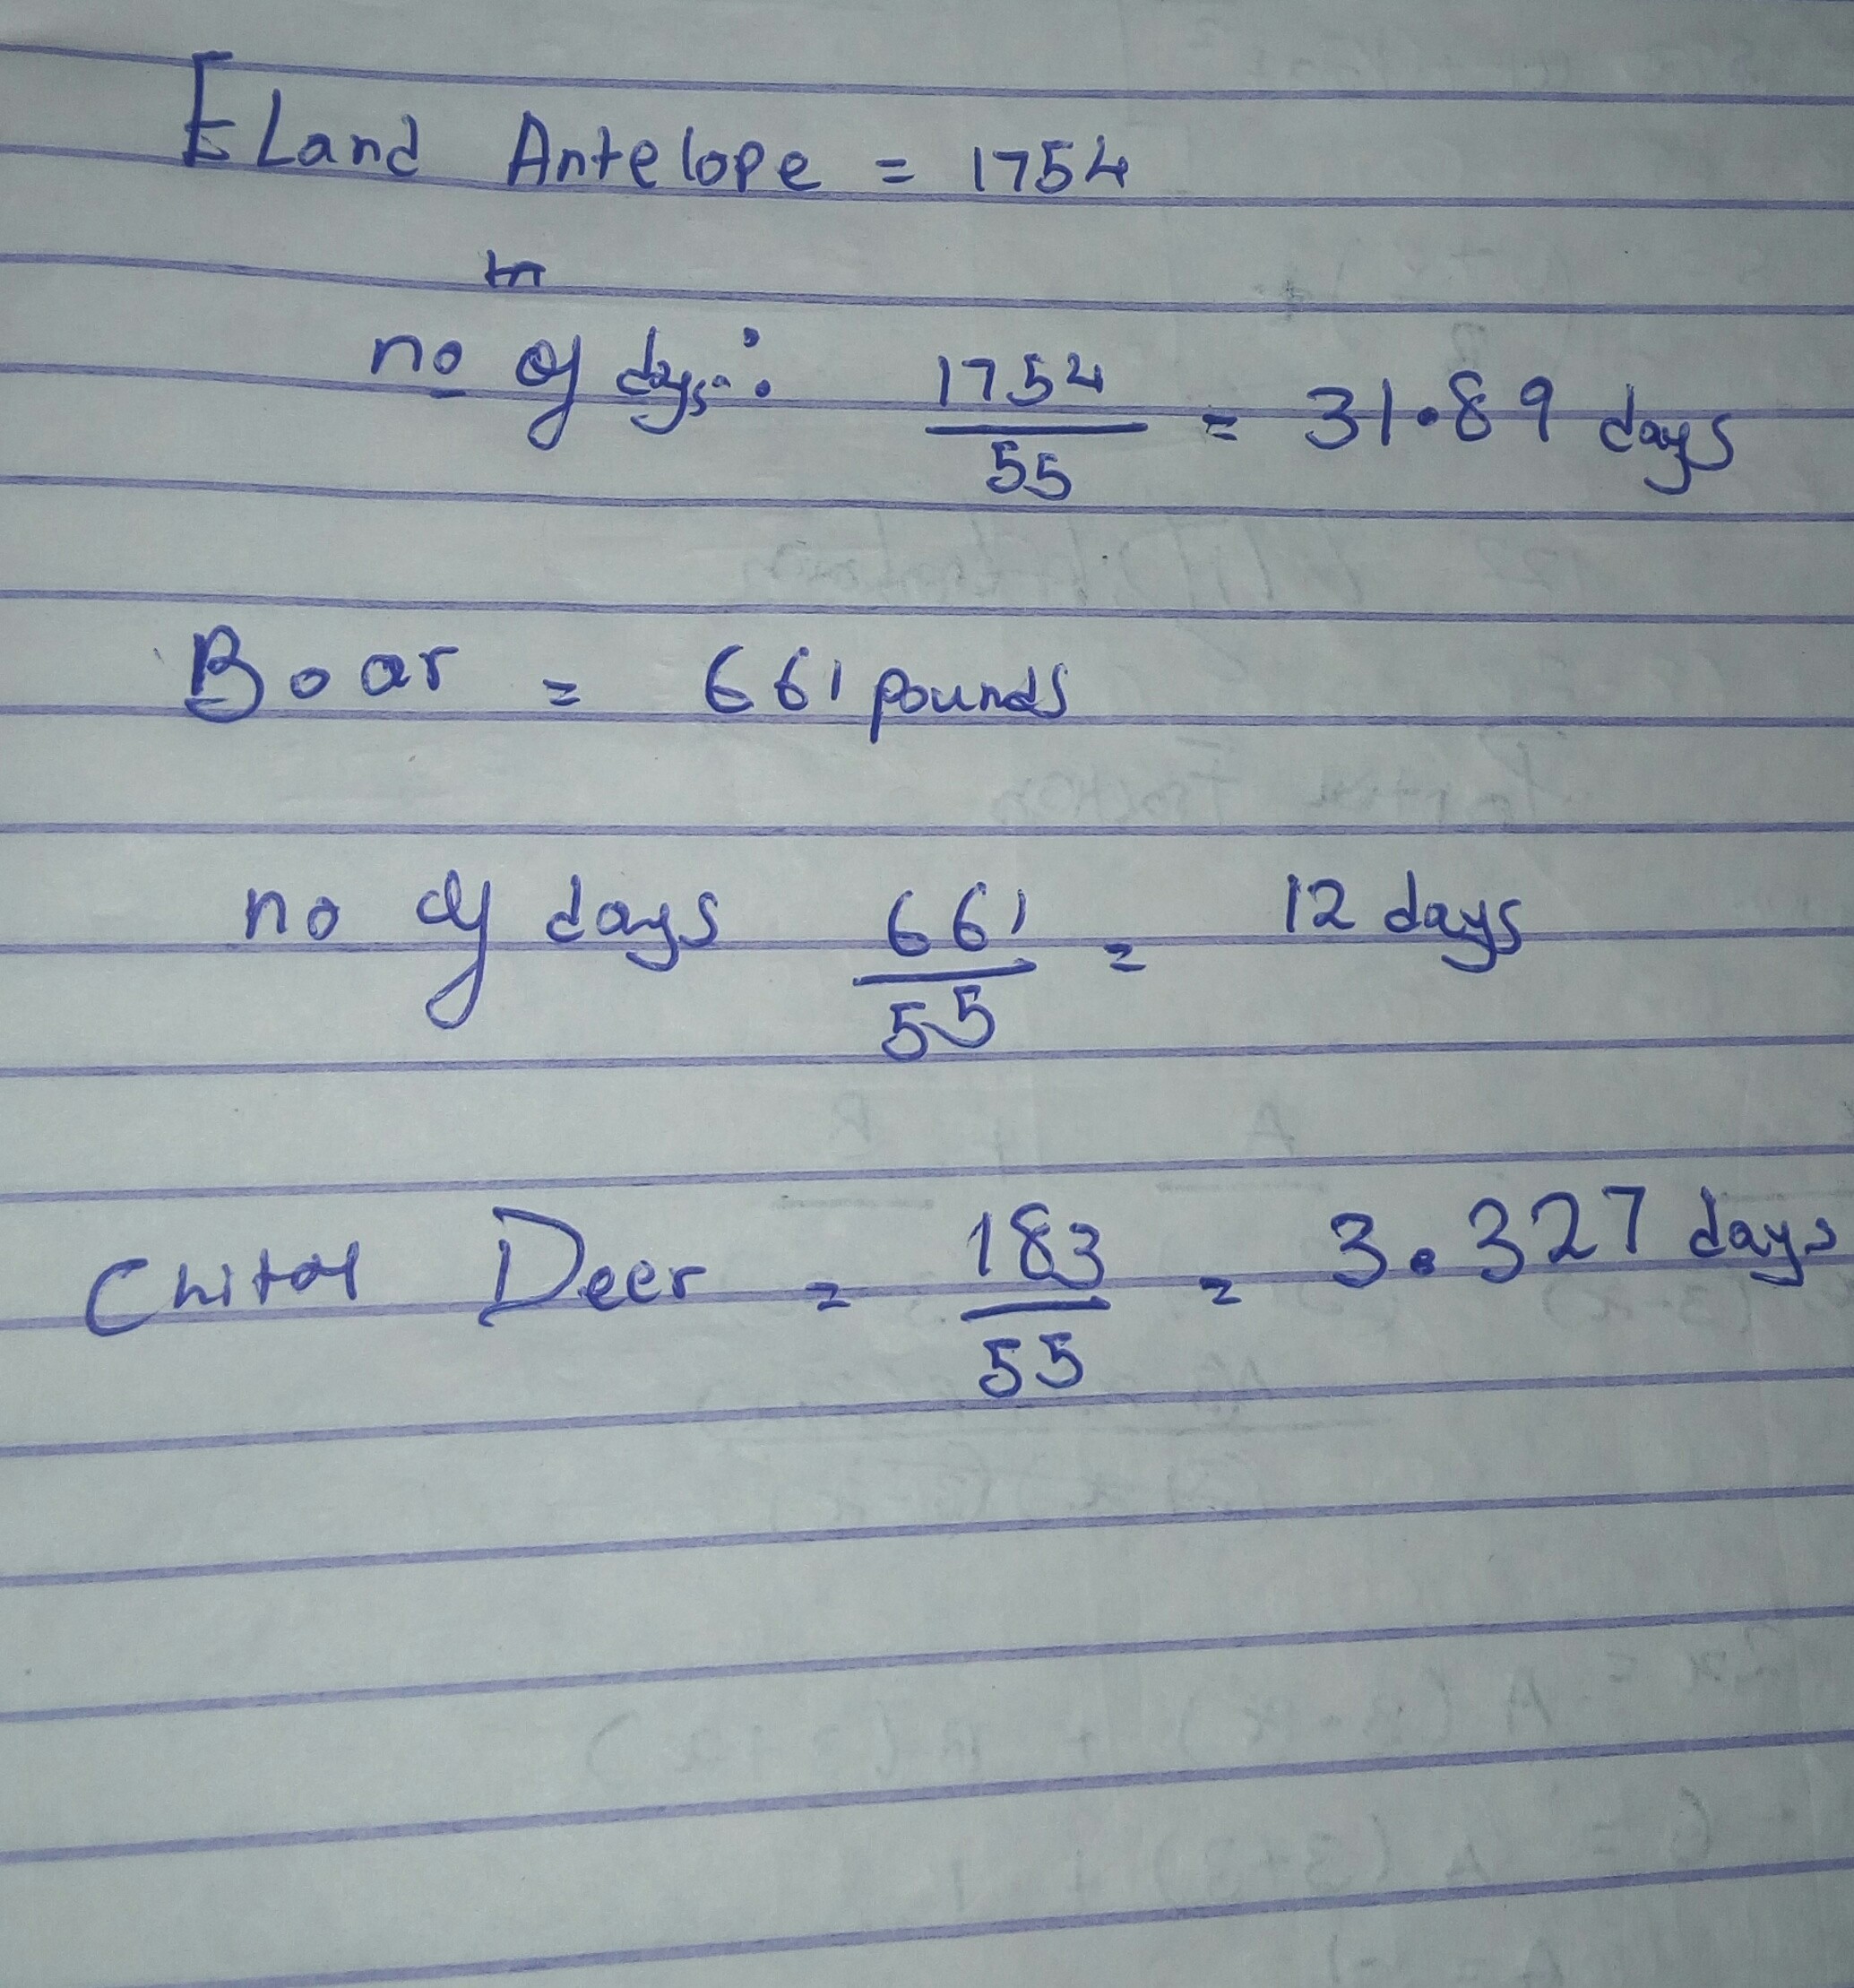 ELand Antelope = 1754
no of days: 1754/55 = 31.89 days
Boar = 661 pounds
no of days 661/55 = 12 days
Chital Deer = 183/55 = 3.327 days